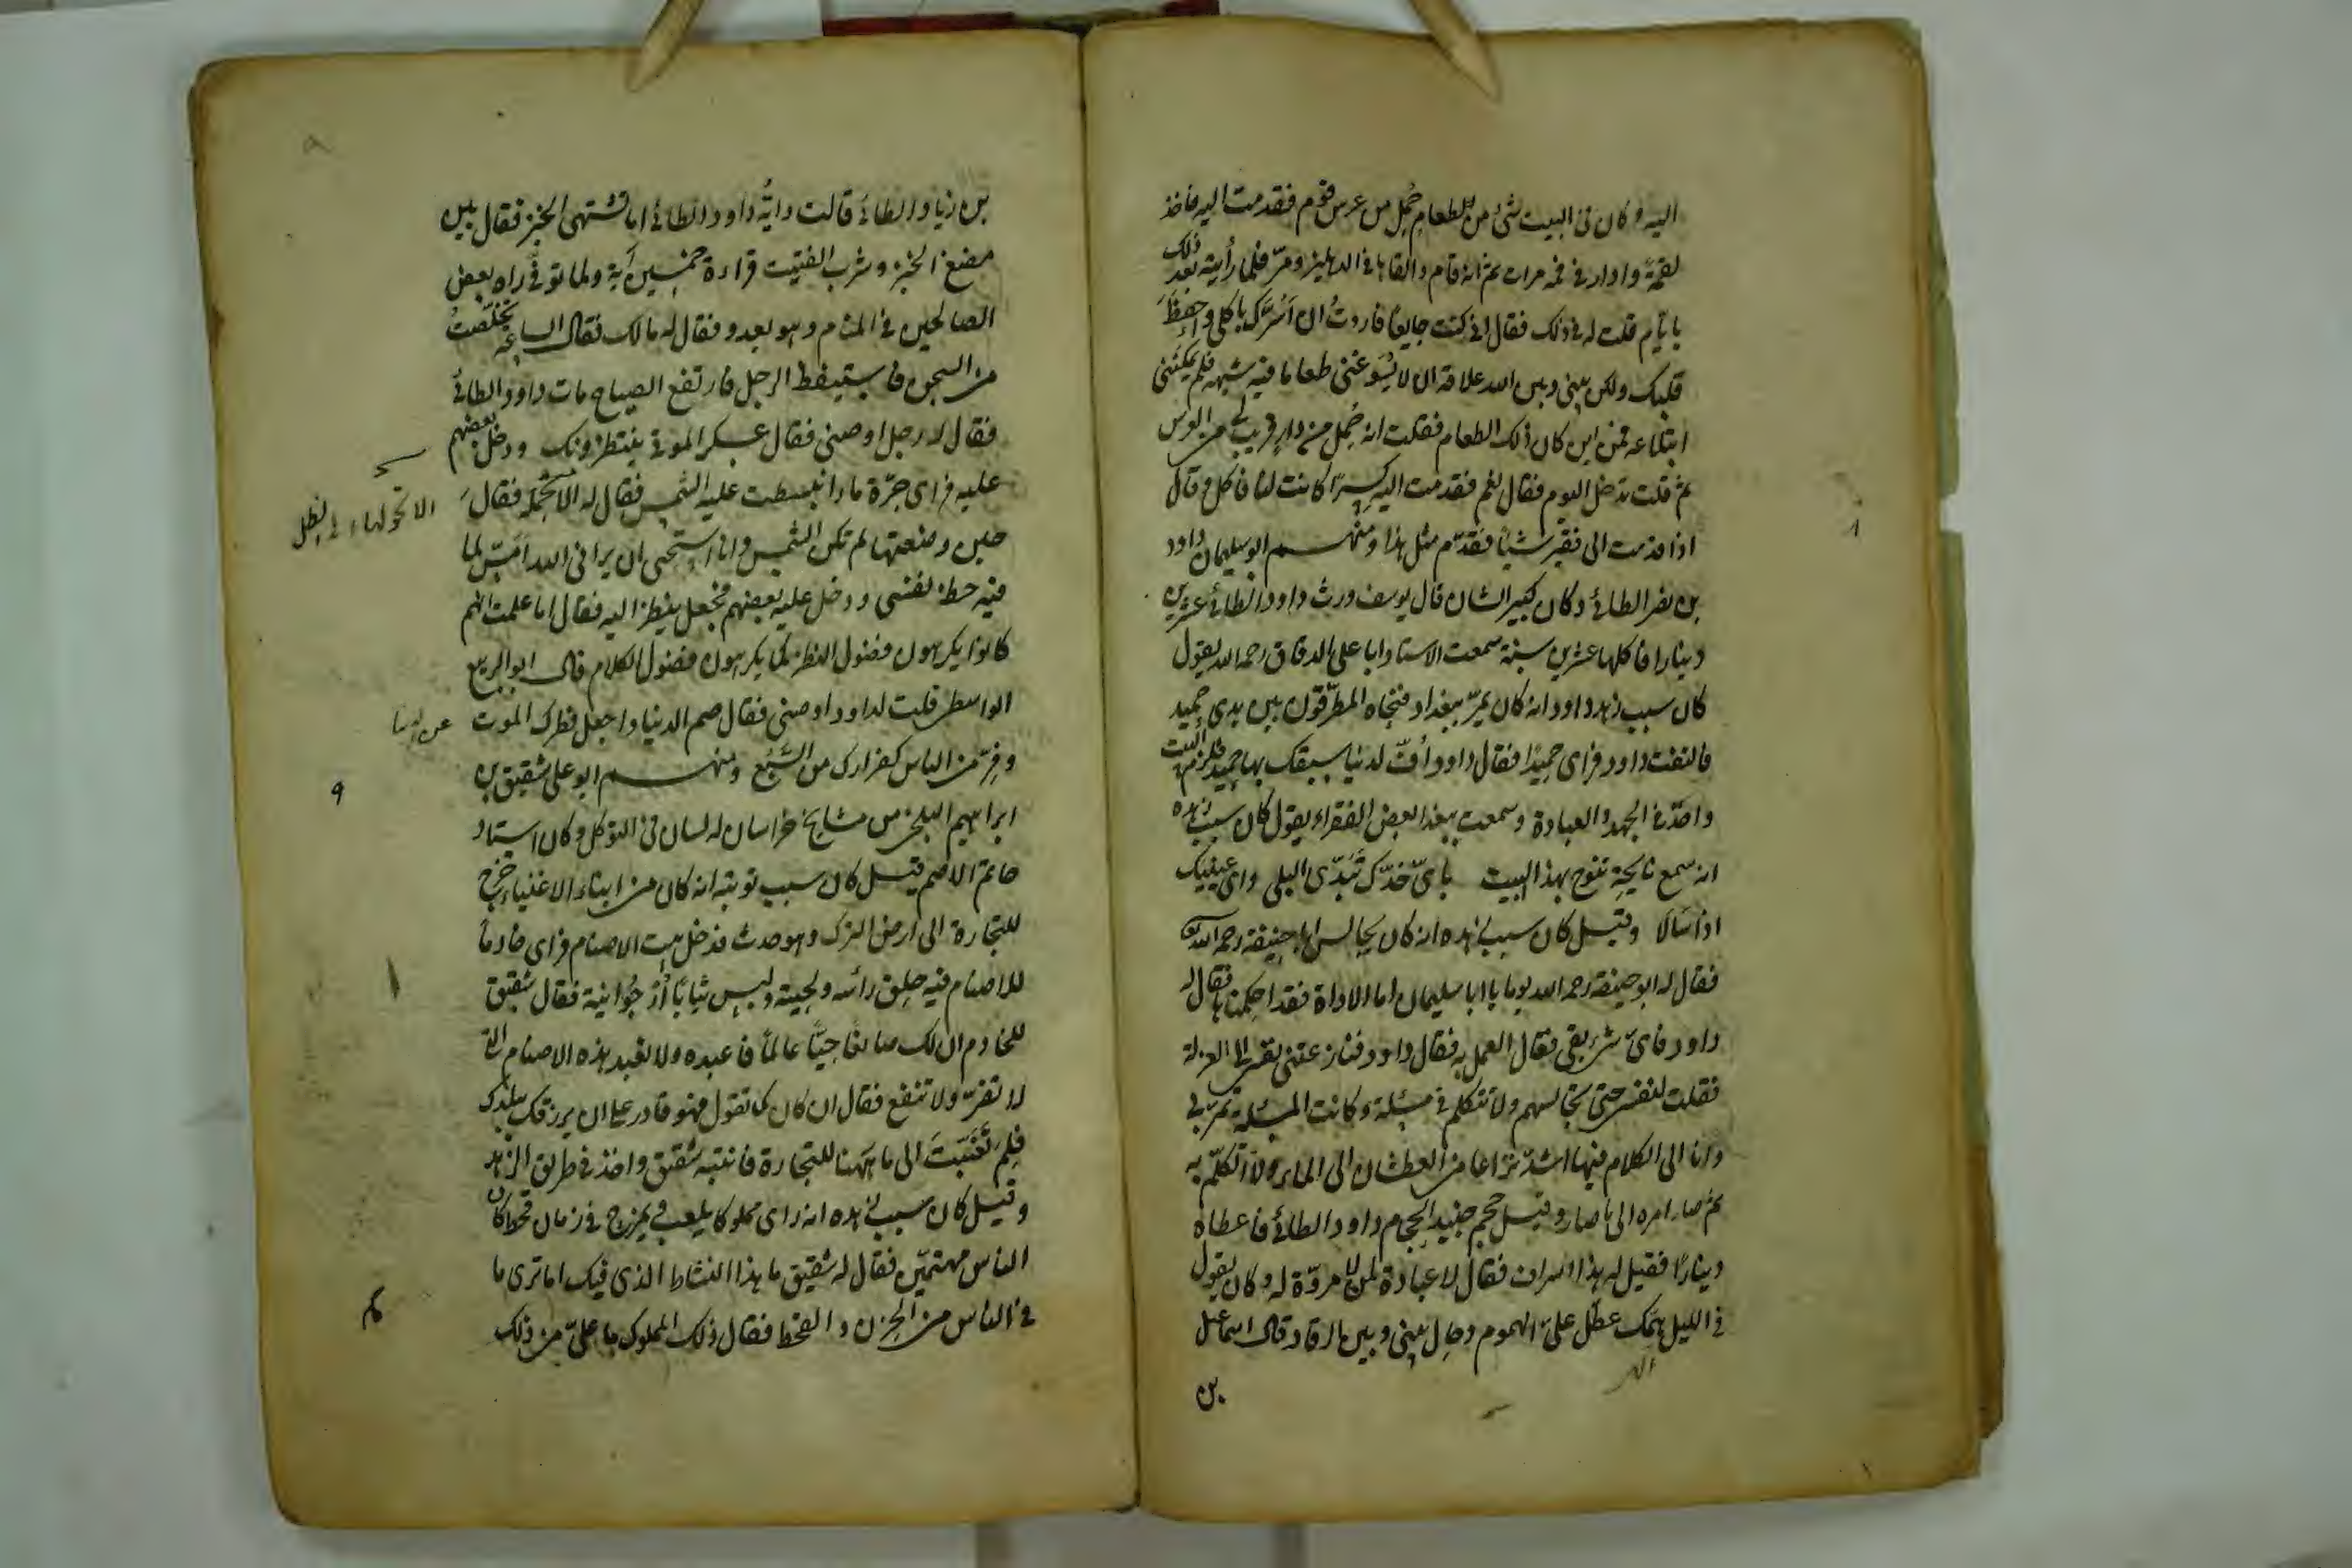 اليه وكان فى البيت شئ من الطعام حُمِل من عرس قوم فقدمت اليه فاخذ
لقمةً وادار فى فمه مرات ثم انه قام والقاها فى الدهليز ومرّ فلما رأيته بعد ذلك
بايام قلت له فى ذلك فقال انى كنت جايعًا فاردتُ ان اَسُرَّك باكلى واحفظَ
قلبك ولكن بينى وبين الله علاقة ان لا يُسَوّغنى طعاما فيه شبهة فلم يمكننى
ابتلاعه فمن اين كان ذلك الطعام فقلت انه حُمِل من دار قريب لى من العرس
ثم قلت تدخل اليوم فقال نعم فقدمت اليه كِسَرًا كانت لنا فاكل وقال
اذا قدمت الى فقير شيئًا فقدّم مثل هذا ومنهم ابو سليمان داود
بن نصر الطائى وكان كبير الشان قال يوسف ورث داود الطائى عشرين
دينارا فاكلها عشرين سنة سمعت الاستاد ابا على الدقاق رحمه الله يقول
كان سبب زهد داود انه كان يمرّ ببغداد فنحّاه المطرّقون بين يدى حميد
فالتفت داود فراى حميدًا فقال داود اُفّ لدنيا سبقك بها حميد فلزم البيت
واخذ فى الجهد والعبادة وسمعت ببغداد بعض الفقراء يقول كان سبب زهده
انه سمع نايحة تنوح بهذا البيت باىّ خدّك تَبَدّى البلى واى عينيك
اذا سَالَا وقيل كان سبب زهده انه كان يجالس ابا حنيفة رحمه الله
فقال له ابو حنيفة رحمه الله يوما يا ابا سليمان اما الاداة فقد احكمناها فقال له
داود فاىّ شئ بقى فقال العمل به فقال داود فنازعتنى نفسى الى العزلة
فقلت لنفسى حتى تجالسهم ولا تتكلم فى مسئلة وكانت المسئلة تمرّ بى
وانا الى الكلام فيها اشدّ نزاعا من العطشان الى الماء ولا اتكلّم به
ثم صار امره الى ما صار وقيل حجم جنيد الحجام داود الطائى فاعطاه
دينارًا فقيل له هذا اسراف فقال لا عبادة لمن لا مروّة له وكان يقول
فى الليل همّك عطّل علىّ الهموم وحال بينى وبين الرقاد قال اسماعيل
بن
بن زياد الطائى قالت دايُّة داود الطائى اما تشتهى الخبز فقال بين
مضغ الخبز وشرب الفتيت قراءة خمسين آية ولما توفى راه بعض
الصالحين فى المنام وهو يعدو فقال له مالك فقال الساعة تخلّصتُ
من السجن فاستيقظ الرجل فارتفع الصياح مات داود الطائى
فقال له رجل اوصنى فقال عسكر الموتى ينتظرونك ودخل بعضهم
عليه فراى جرّة ماء انبسطت عليه الشمس فقال له الا تحملها فقال
الا تحولها الى الظل
حين وضعتها لم تكن الشمس وانا استحيى ان يرانى الله امشى لما
فيه حظ نفسى ودخل عليه بعضهم فجعل ينظر اليه فقال اما علمت انهم
كانوا يكرهون فضول النظر كما يكرهون فضول الكلام قال ابو الربيع
الواسطى قلت لداود اوصنى فقال صم الدنيا واجعل فطرك الموت
عن الدنيا
وفِرّ من الناس كفرارك من السَّبُع ومنهم ابو على شقيق بن
٩
ابراهيم البلخى من مشايخ خراسان له لسان فى التوكل وكان استاد
حاتم الاصم قيل كان سبب توبته انه كان من ابناء الاغنياء خرج
للتجارة الى ارض الترك وهو حدث فدخل بيت الاصنام فراى خادمًا
للاصنام فيه حلق رأسه ولحيته ولبس ثيابًا اُرْجُوانية فقال شقيق
للخادم ان لك صانعًا حيًّا عالمًا فاعبده ولا تعبد هذه الاصنام التى
لا تضرّ ولا تنفع فقال ان كان كما تقول فهو قادر على ان يرزقك ببلدك
فلِمَ تعَنَّيتَ الى ما ههنا للتجارة فانتبه شقيق واخذ فى طريق الزهد
وقيل كان سبب زهده انه راى مملوكا يلعب ويمرح فى زمان قحط كان
الناس مهتمّين فقال له شقيق ما هذا النشاط الذى فيك اما ترى ما
فى الناس من الحزن والقحط فقال ذلك المملوك ما علىّ من ذلك